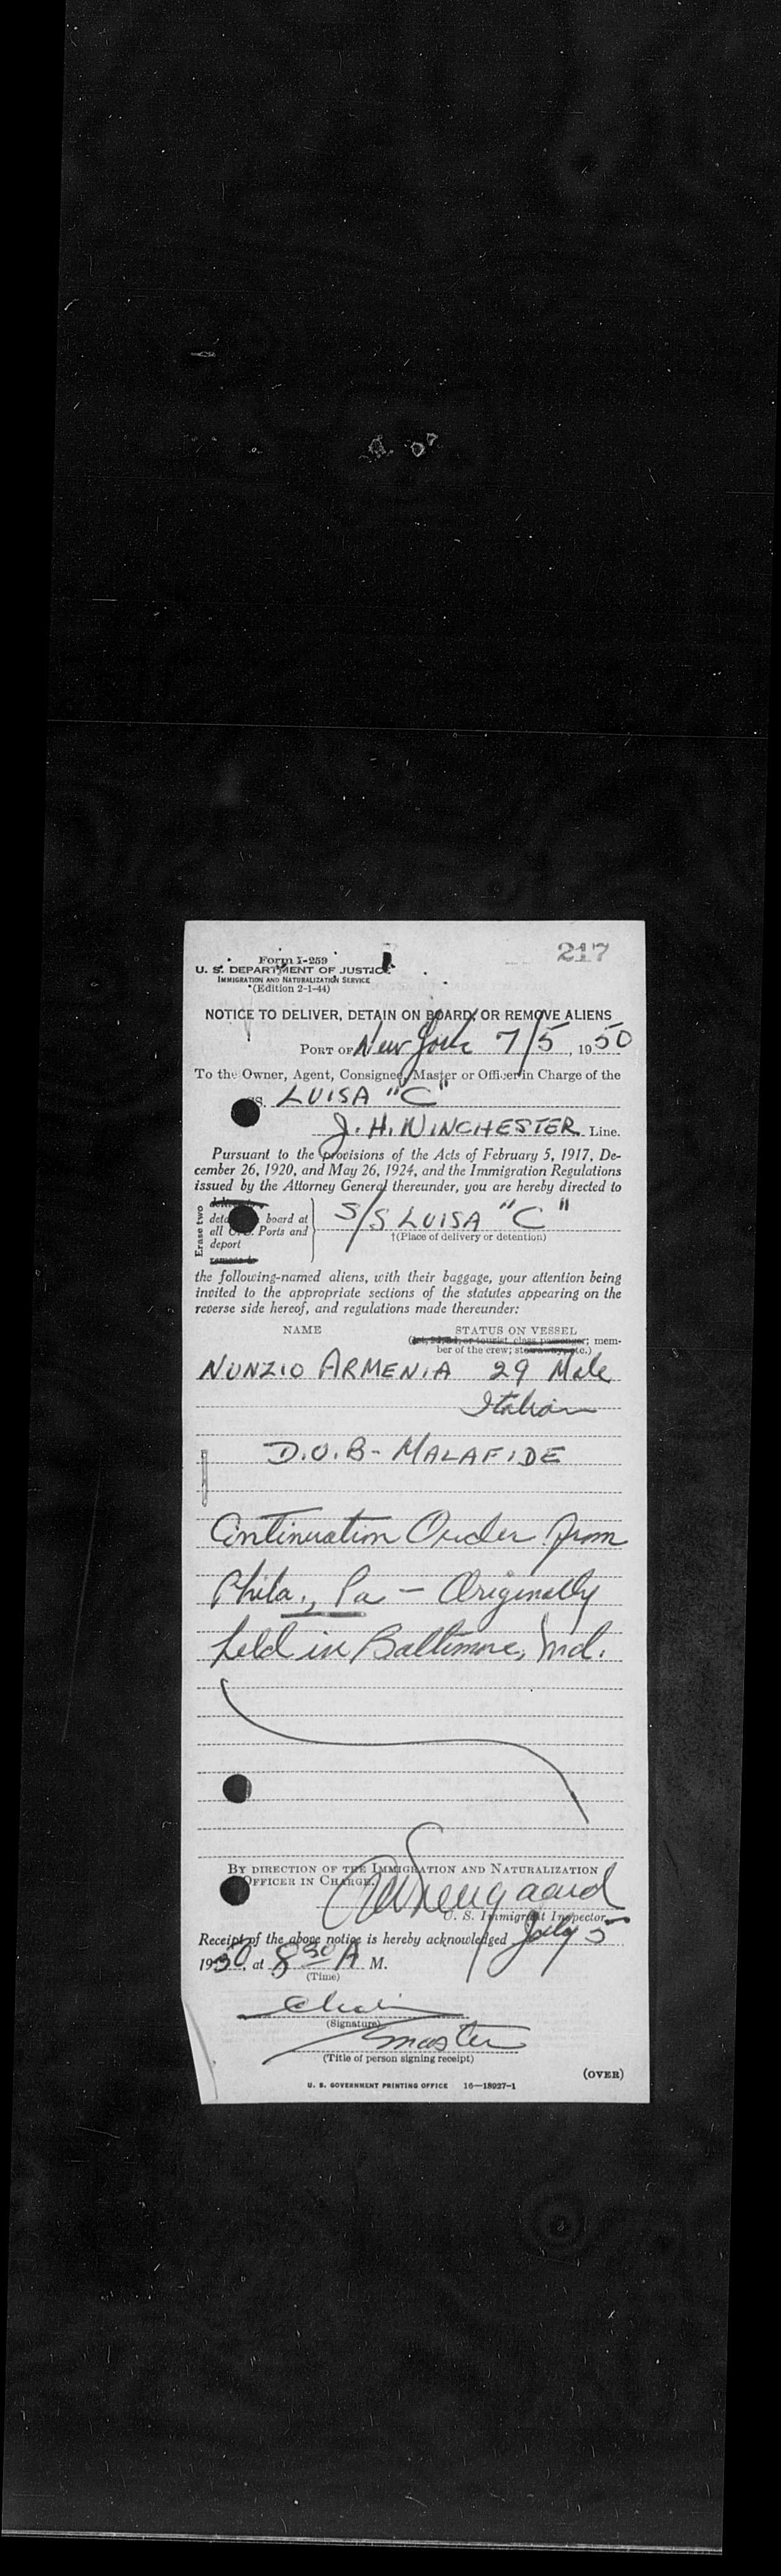 217
Form I-259
U. S. DEPARTMENT OF JUSTICE
IMMIGRATION AND NATURALIZATION SERVICE
(Edition 2-1-44)
NOTICE TO DELIVER, DETAIN ON BOARD, OR REMOVE ALIENS
PORT OF New York 7/5, 1950
To the Owner, Agent, Consignee, Master or Officer in Charge of the
SS. LUISA "C"
J. H. WINCHESTER Line.
Pursuant to the provisions of the Acts of February 5, 1917, De-
cember 26, 1920, and May 26, 1924, and the Immigration Regulations
issued by the Attorney General thereunder, you are hereby directed to
Erase two
board at
all Ports and
deport
remove to
S/S LUISA "C"
†(Place of delivery or detention)
the following-named aliens, with their baggage, your attention being
invited to the appropriate sections of the statutes appearing on the
reverse side hereof, and regulations made thereunder:
NAME STATUS ON VESSEL
(1st, 2d, 3d, or tourist class passenger; mem-
ber of the crew; stowaway, etc.)
NUNZIO ARMENIA 29 Male
Italian
D.O.B- MALAFIDE
Continuation Order from
Phila., Pa - Originally
held in Baltimore, Md.
BY DIRECTION OF THE IMMIGRATION AND NATURALIZATION
OFFICER IN CHARGE.
U. S. Immigrant Inspector.
Receipt of the above notice is hereby acknowledged July 5
1950, at 8 30 A M.
(Time)
(Signature)
Master
(Title of person signing receipt)
(OVER)
U. S. GOVERNMENT PRINTING OFFICE 16—18927-1